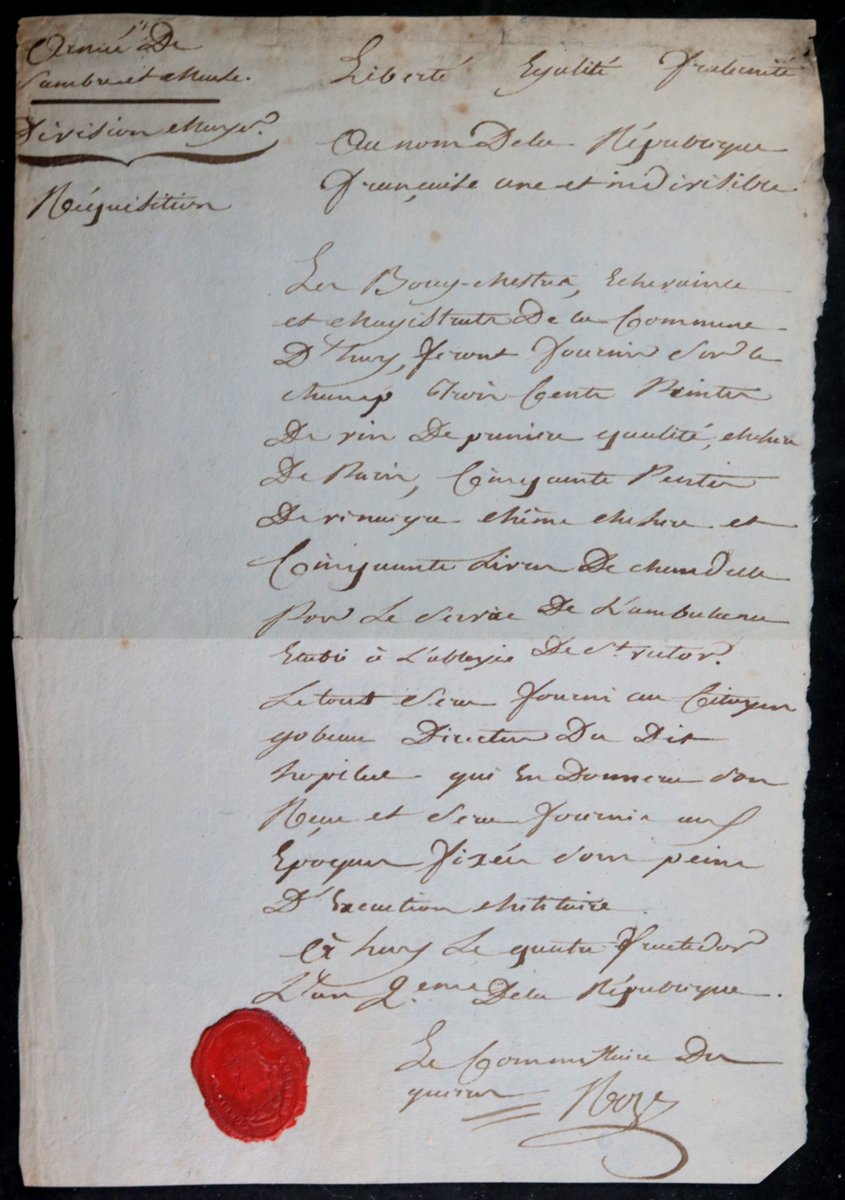 Armée De
Sambre et Meuse.
Division Mayer.
Réquisition
Liberté Egalité fraternité
Au nom De la République
française une et indivisible
Les Bourg-Mestres, Echevains
et Magistrats De la Commune
D'huy, feront fournir Sur le
champ trois Cents Peintes
De vin De premiere qualité, Mesure
De Paris, Cinquante Peintes
De vinaigre Même Mesure et
Cinquante Livres De chandelle
Pour Le Service De L'ambulance
Etabli à L'abbayie De St. victor.
Le tout Sera fourni au Citoyen
gobeau Directeur Du Dit
hopital qui En Donnera Son
Recu et Sera fournie aux
Epoques fixées Sous peine
D'Execution Militaire.
A huy Le quatre fructidor
L'an 2.eme De la République.
Le Commissaire Des
guerres